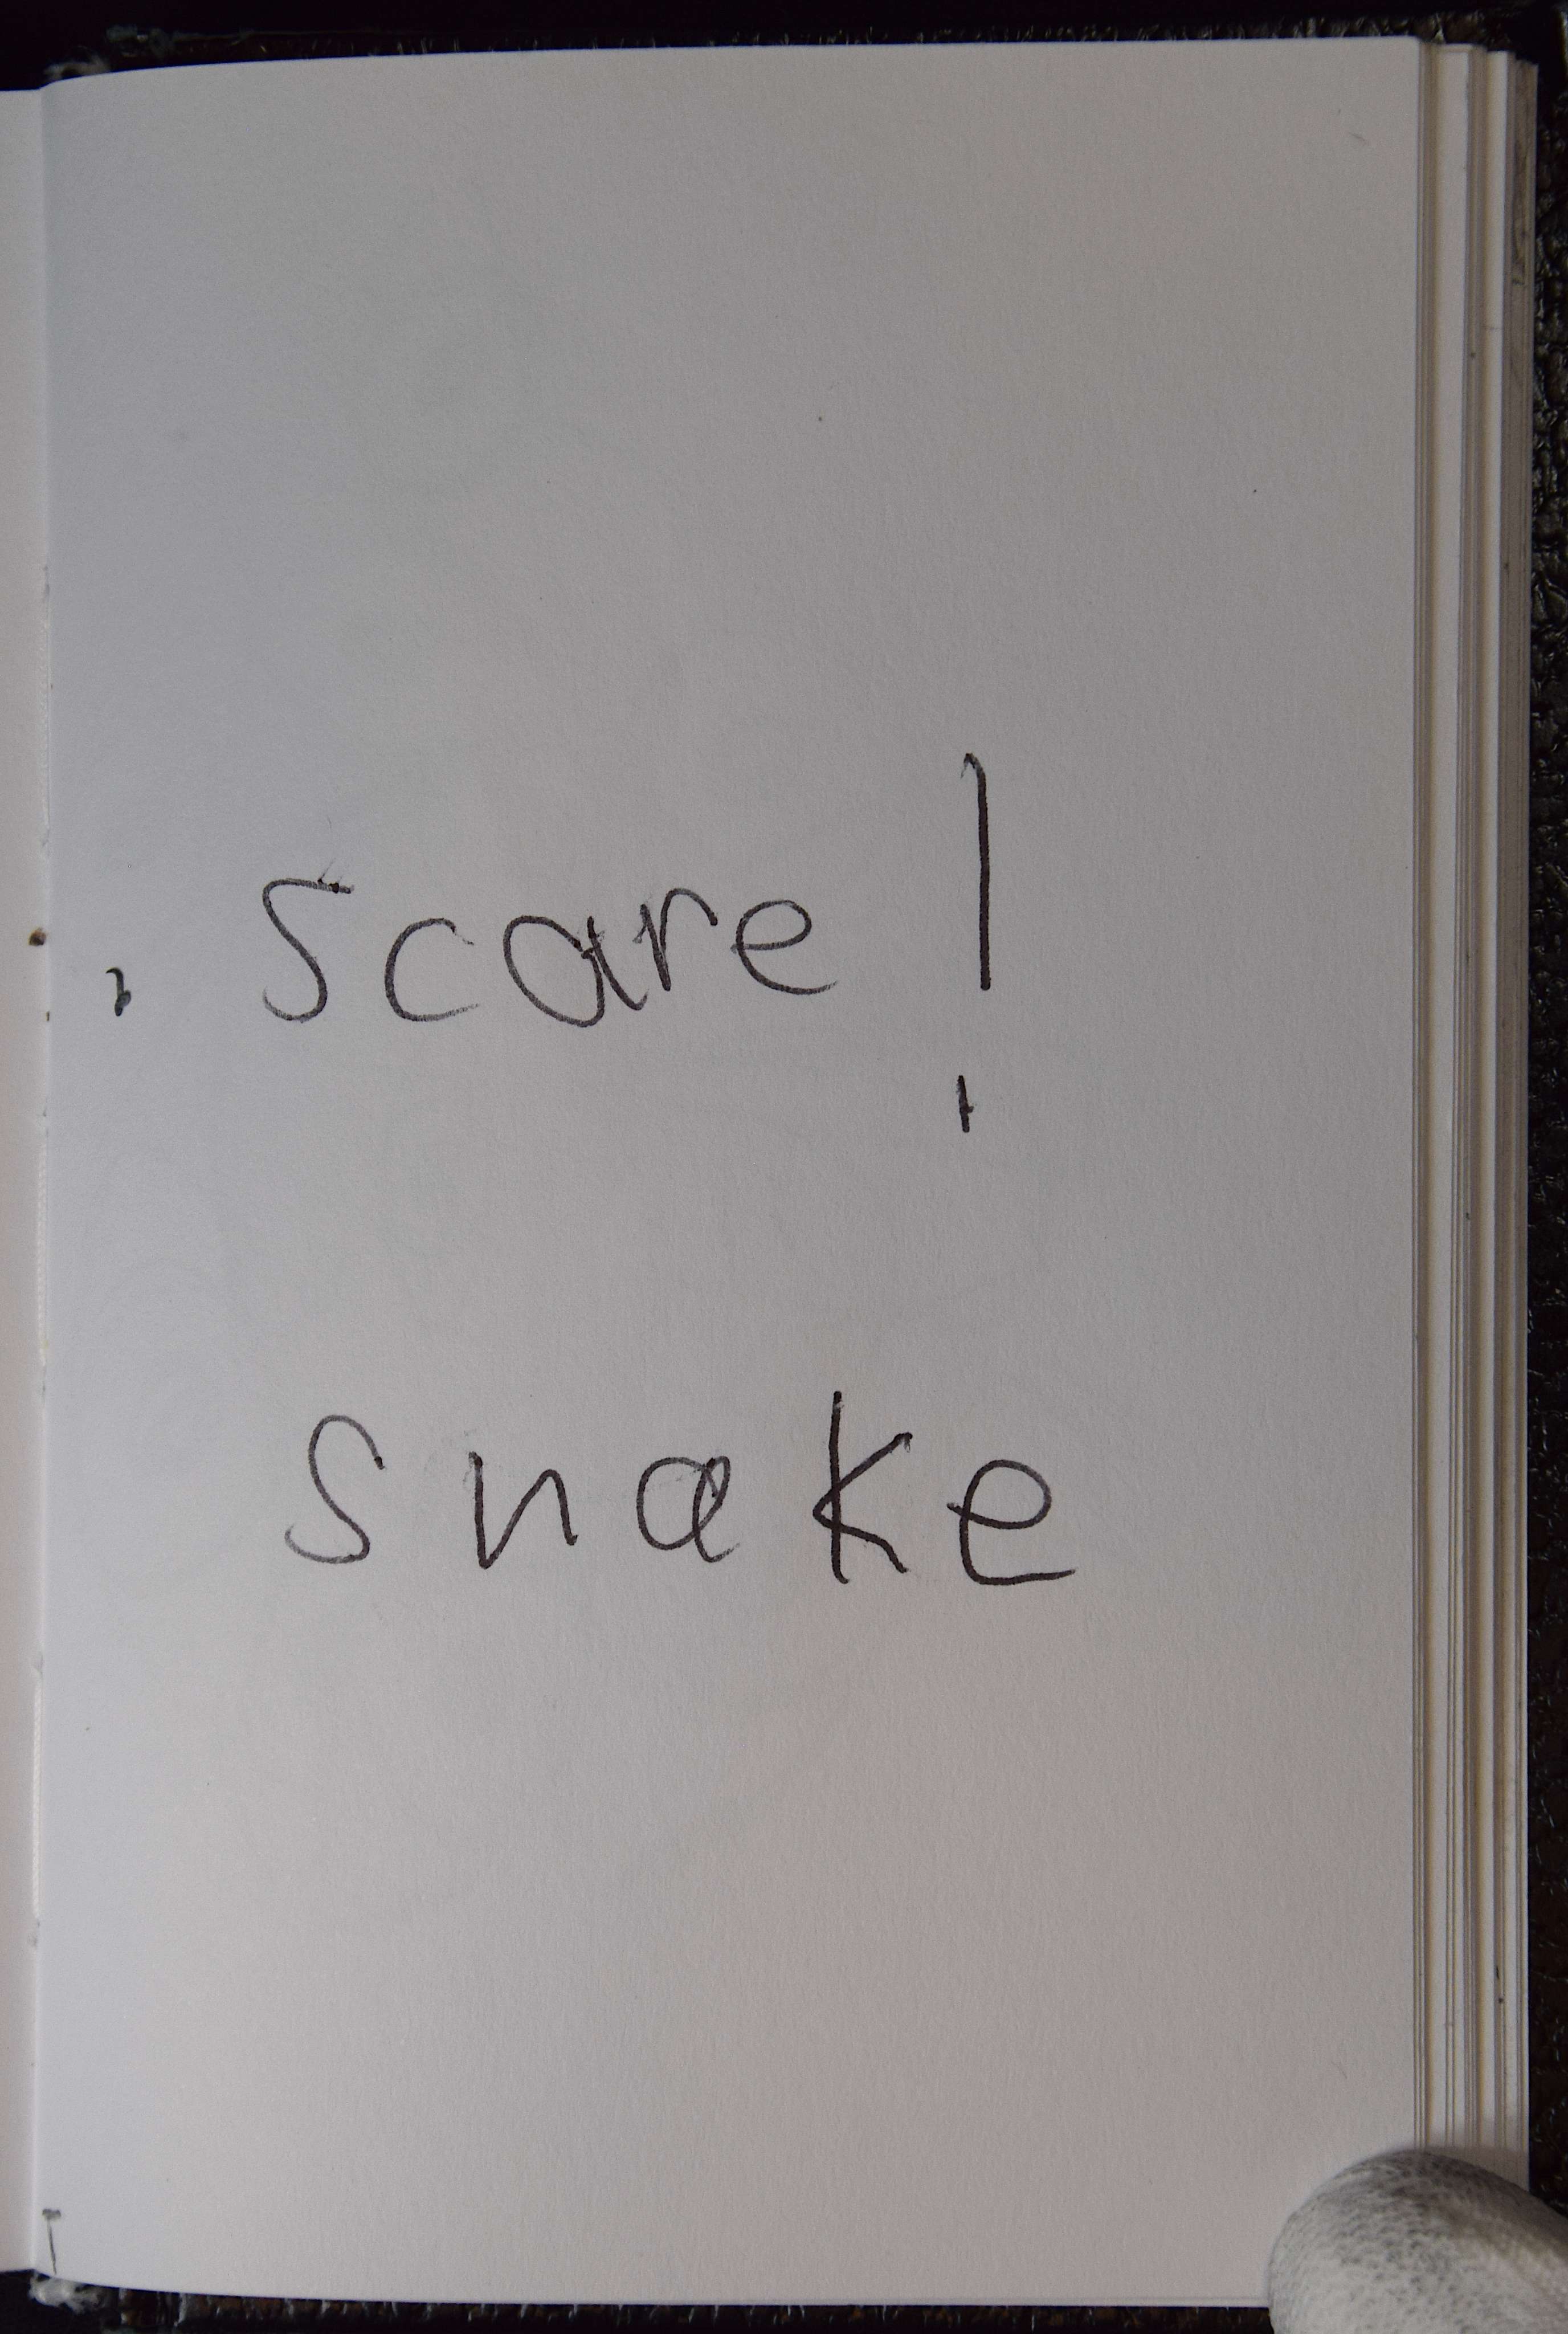 Scare!
Snake